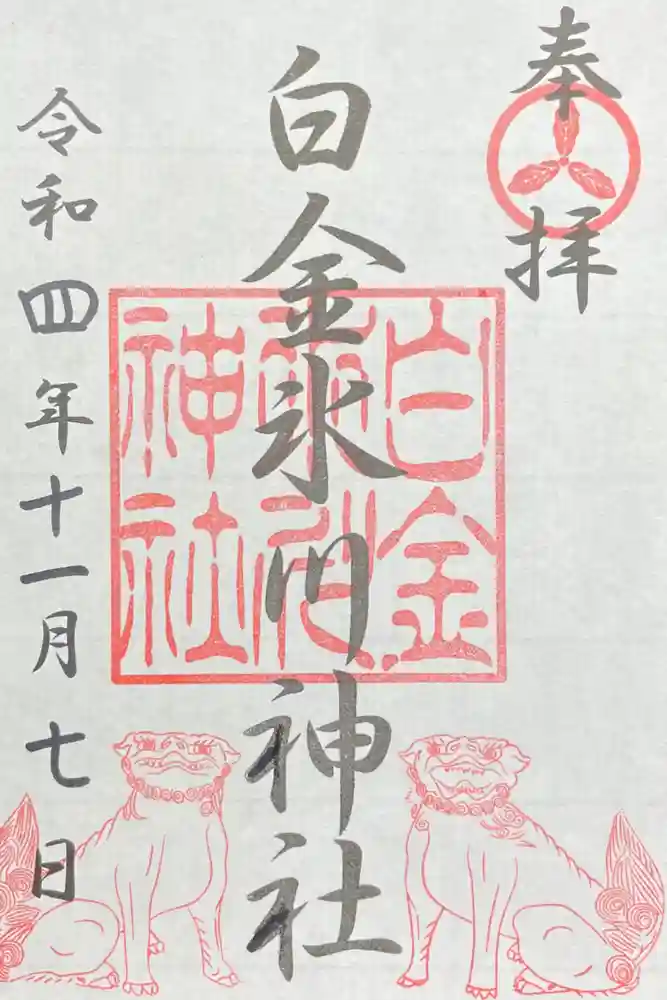 奉拝
白金氷川神社
令和四年十一月七日
白金
氷川
神社